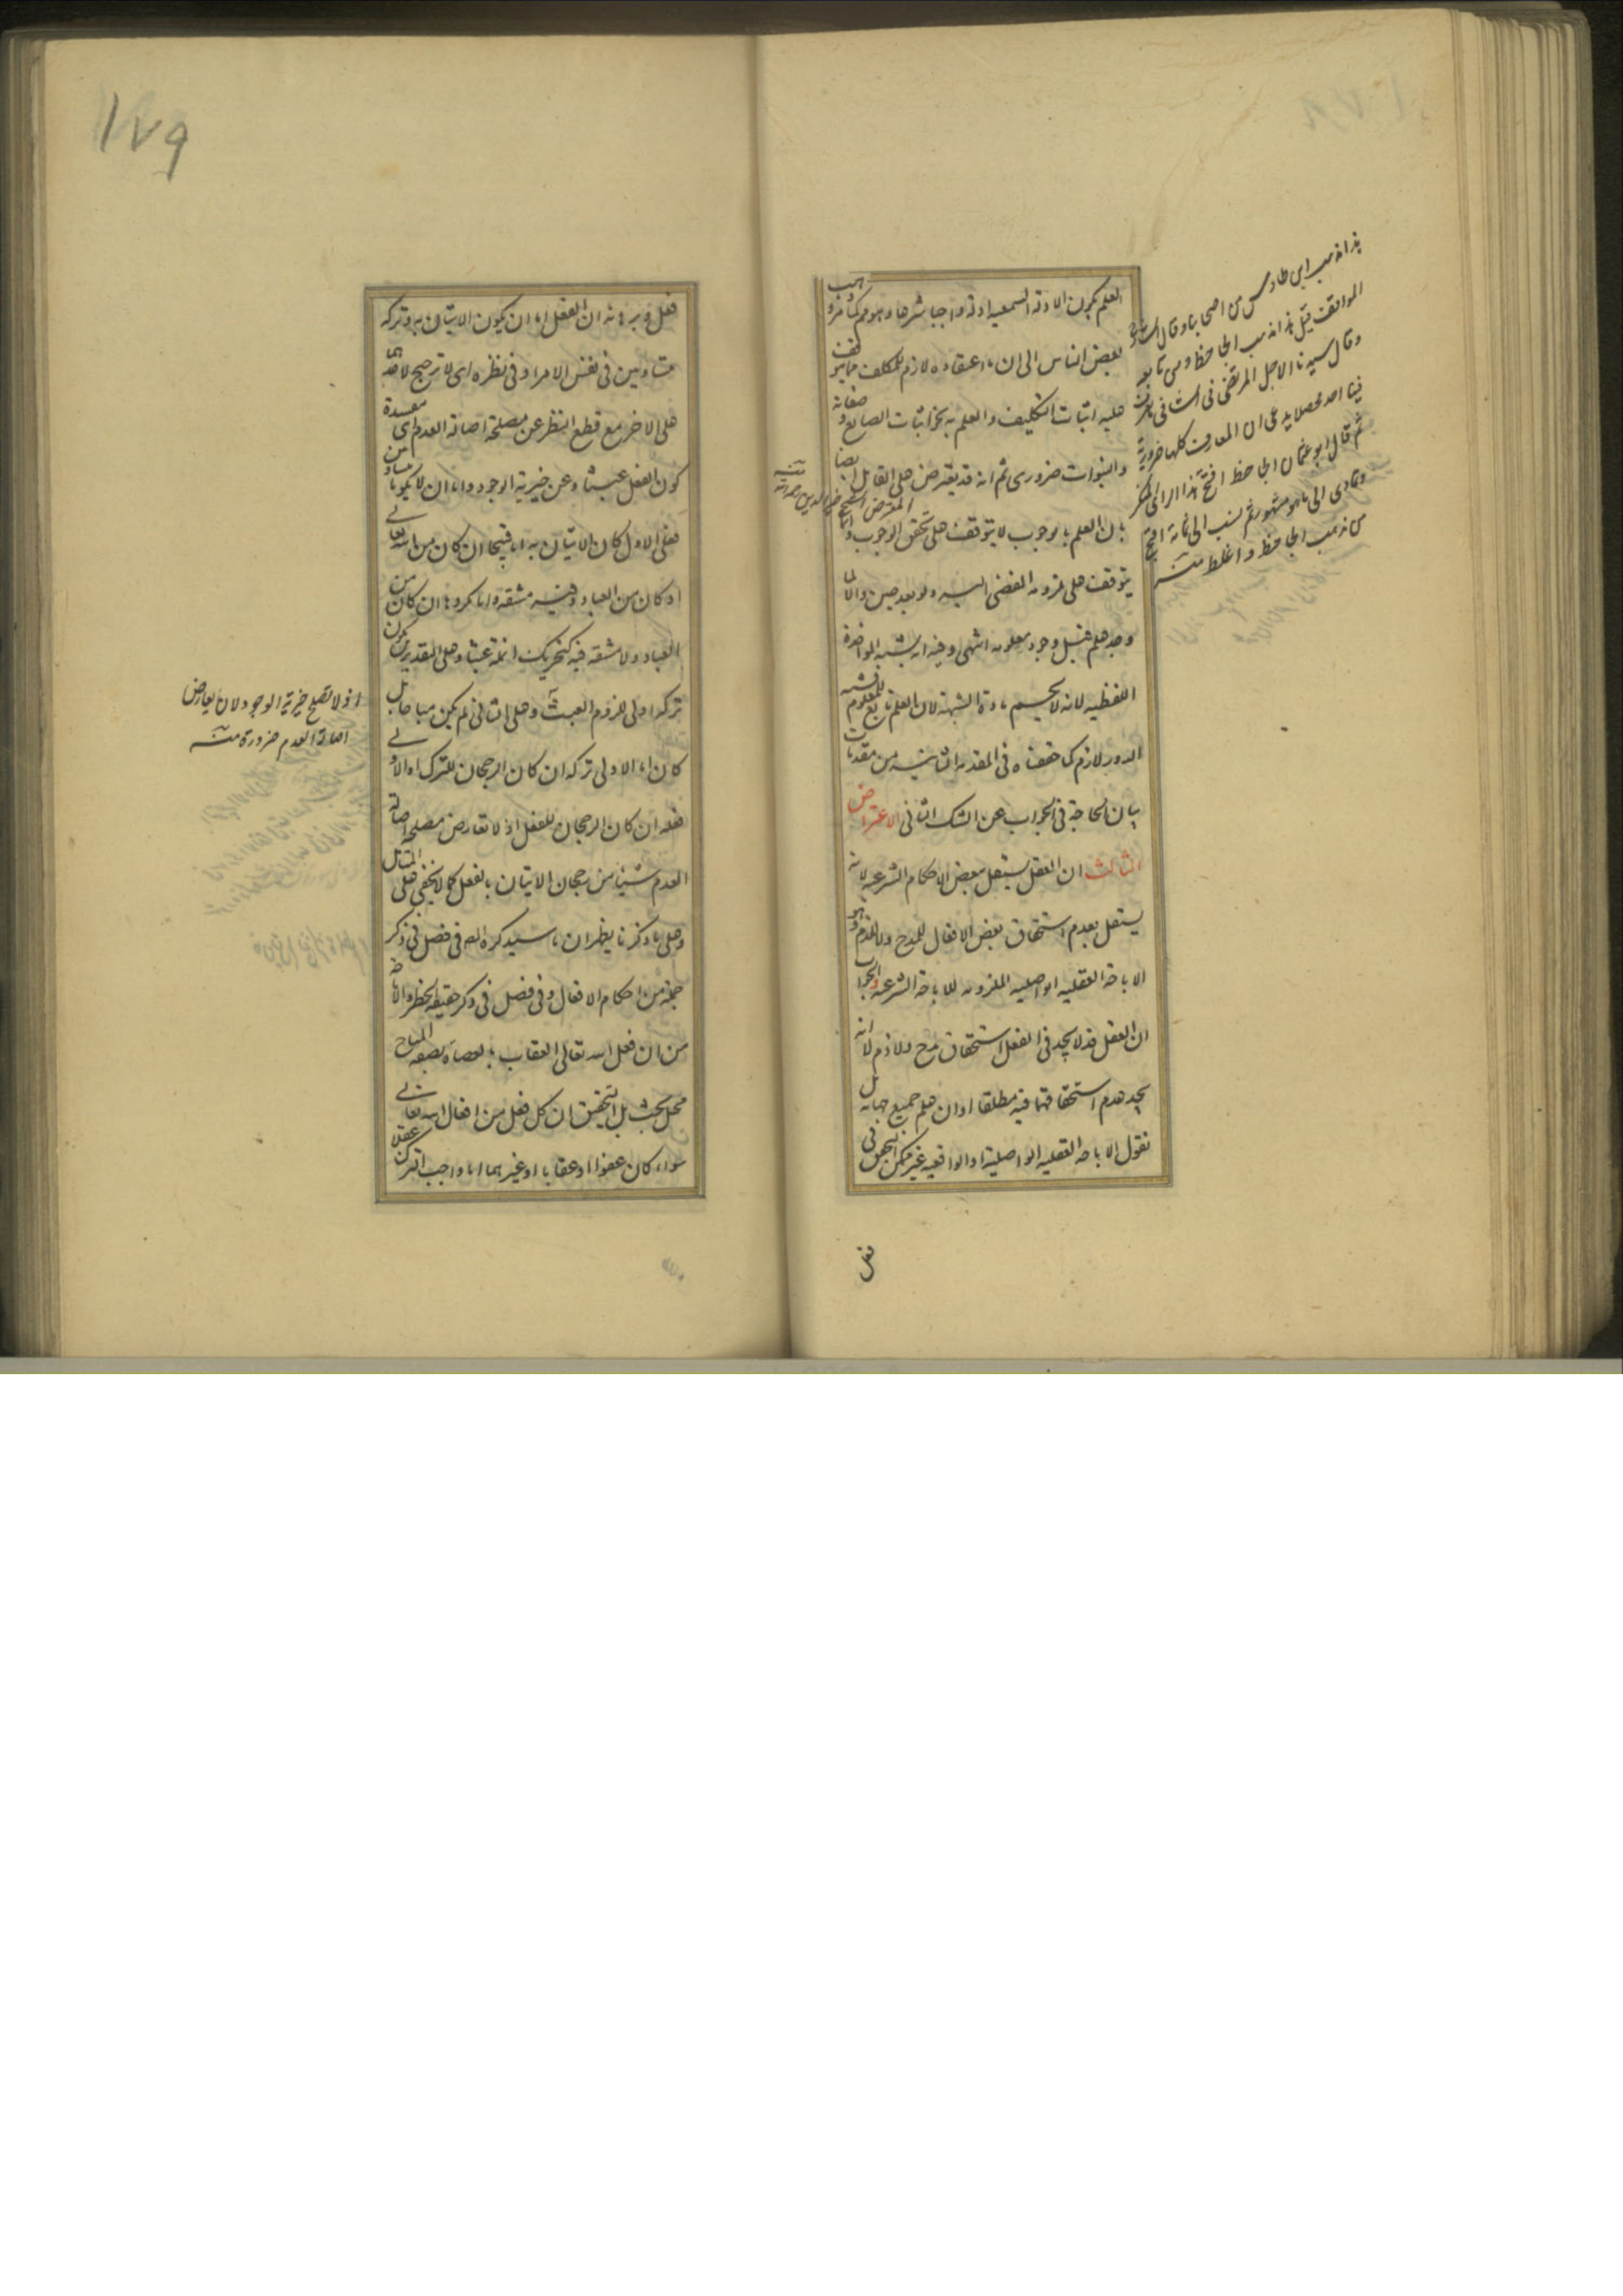 العلم بكون الادلة السمعيه ادلة واجبا شرعا وهو مم كما مر وذهب
بعض الناس الى ان ما اعتقاده لازم للمكلف مما يتوقف
عليه اثبات التكليف والعلم به بخز اثبات الصانع وصفاته
والنبوات ضرورى ثم انه قد يعترض على القايل ايضا
بان العلم بالوجوب لا يتوقف على تحقق الوجوب وانما
يتوقف على لزومه المفضى اليه ولو بعد حين
وجد علم قبل وجود معلومه انتهى وفيه انه يشبه المواخذة
اللفظيه لانه لا يحسم مادة الشبهة لان العلم تابع للمعلوم
الدور لازم كما حققناه فى المقدمه الثانيه من مقدمات
بيان الحاجة فى الجواب عن الشك الثانى الاعتراض
الثالث ان العقل يستقل ببعض الاحكام الشرعيه لانه
يستقل بعدم استحقاق بعض الافعال للمدح والذم وهو
الاباحه العقليه الواصليه الملزومه للاباحة الشرعيه والجواب
ان العقل قد لا يجد فى الفعل استحقاق مدح ولا ذم لا انه
يجد عدم استحقاقهما فيه مطلقا او ان علم جميع جهاته بل
نقول الاباحه العقليه الواصلية او الواقعيه غير ممكن التحقق فى
فعل
هذا مذهب ابن طاوس من اصحابنا وقال شارح
المواقف قيل هذا مذهب الجاحظ ومن تابعه
وقال سيدنا الاجل المرتضى فى الشافى
فينا احد محصلا يدعى ان المعارف كلها ضرورية
ثم قال ابو عثمان الجاحظ افتتح هذا الراى المنكر
وتمادى الى ما هو مشهور ثم نسب الى ثمامة اقبح
من مذهب الجاحظ واغلظ منه
١٧٩
فعل وبرهانه ان الفعل اما ان يكون الاتيان به وتركه
متساويين فى نفس الامر او فى نظره اى لا ترجيح لاحدهما
على الاخر مع قطع النظر عن مصلحة اصالة العدم اى مفسدة
كون الفعل عبثا وعن خيرية الوجود واما ان لا يكونا متساويين
فعلى الاول كان الاتيان به اما قبيحا ان كان من الله تعالى
او كان من العباد وفيه مشقه واما مكروها ان كان من
العباد ولا مشقه فيه كتحريك انملة عبثا وعلى التقديرين يكون
تركه اولى للزوم العبث وعلى الثانى لم يكن مباحا بل
كان اما الاولى تركه ان كان الرجحان للترك او الاولى
فعله ان كان الرجحان للفعل اذ لا تعارض مصلحة اصالة
العدم شيئا من رجحان الاتيان بالفعل كما لا يخفى على المتامل
وعلى ما ذكرنا يظهر ان ما سيذكره المص فى فصل فى ذكر
جملة من احكام الافعال وفى فصل فى ذكر حقيقة الحظر والاباحة
من ان فعل الله تعالى العقاب بالعصاة بصفه المباح
محل بحث بل التحقيق ان كل فعل من افعال الله تعالى
سواء كان عفوا او عقابا او غيرهما اما واجب الترك عقلا
اذ لا تصلح خيرية الوجود لان يعارض
اصالة العدم ضرورة منه